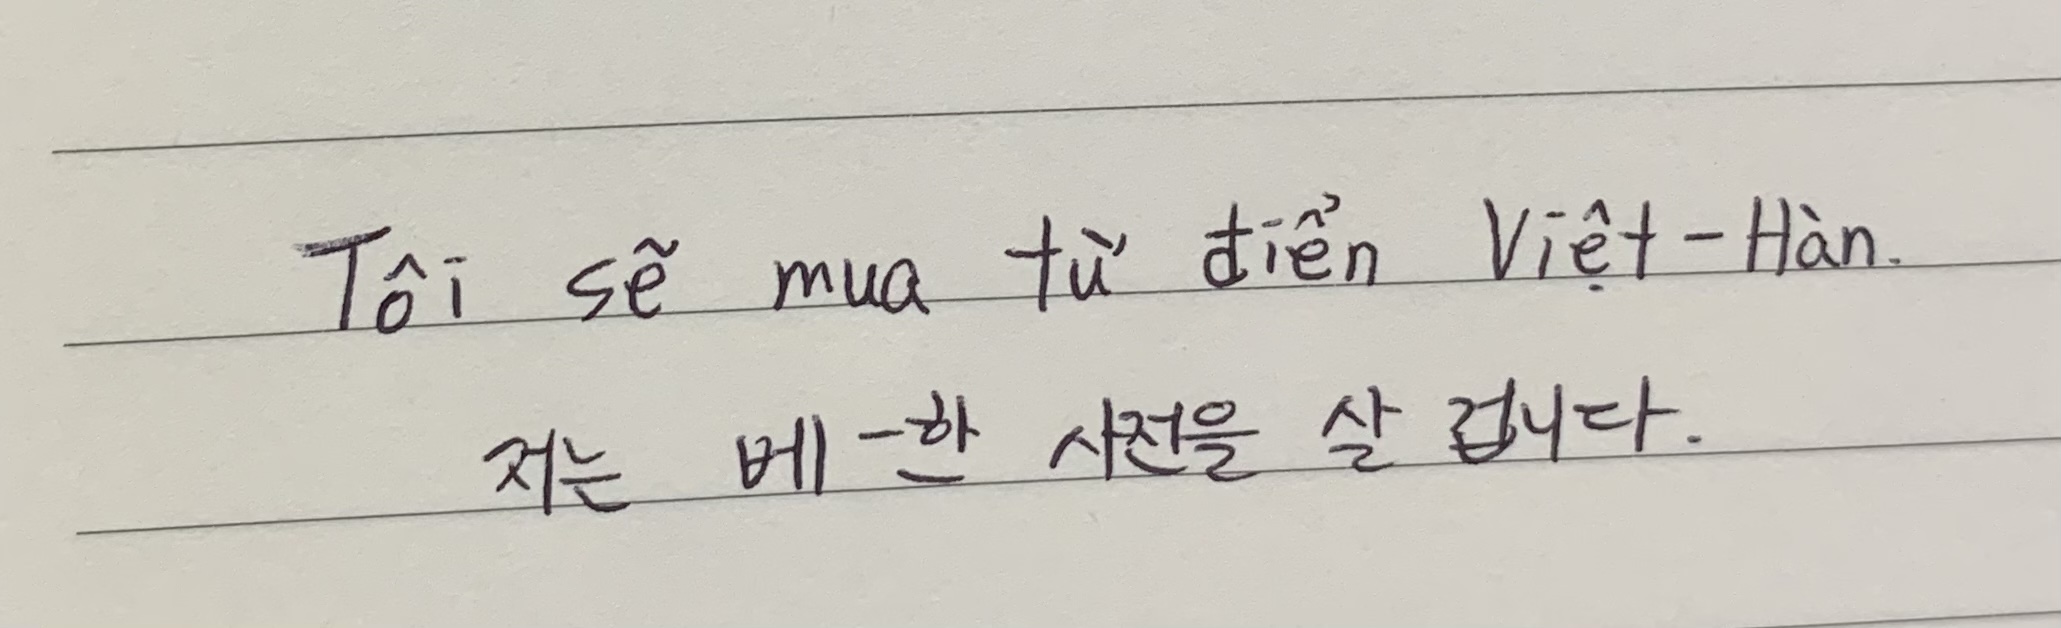 Tôi sẽ mua từ điển Việt-Hàn.
저는 베-한 사전을 살 겁니다.